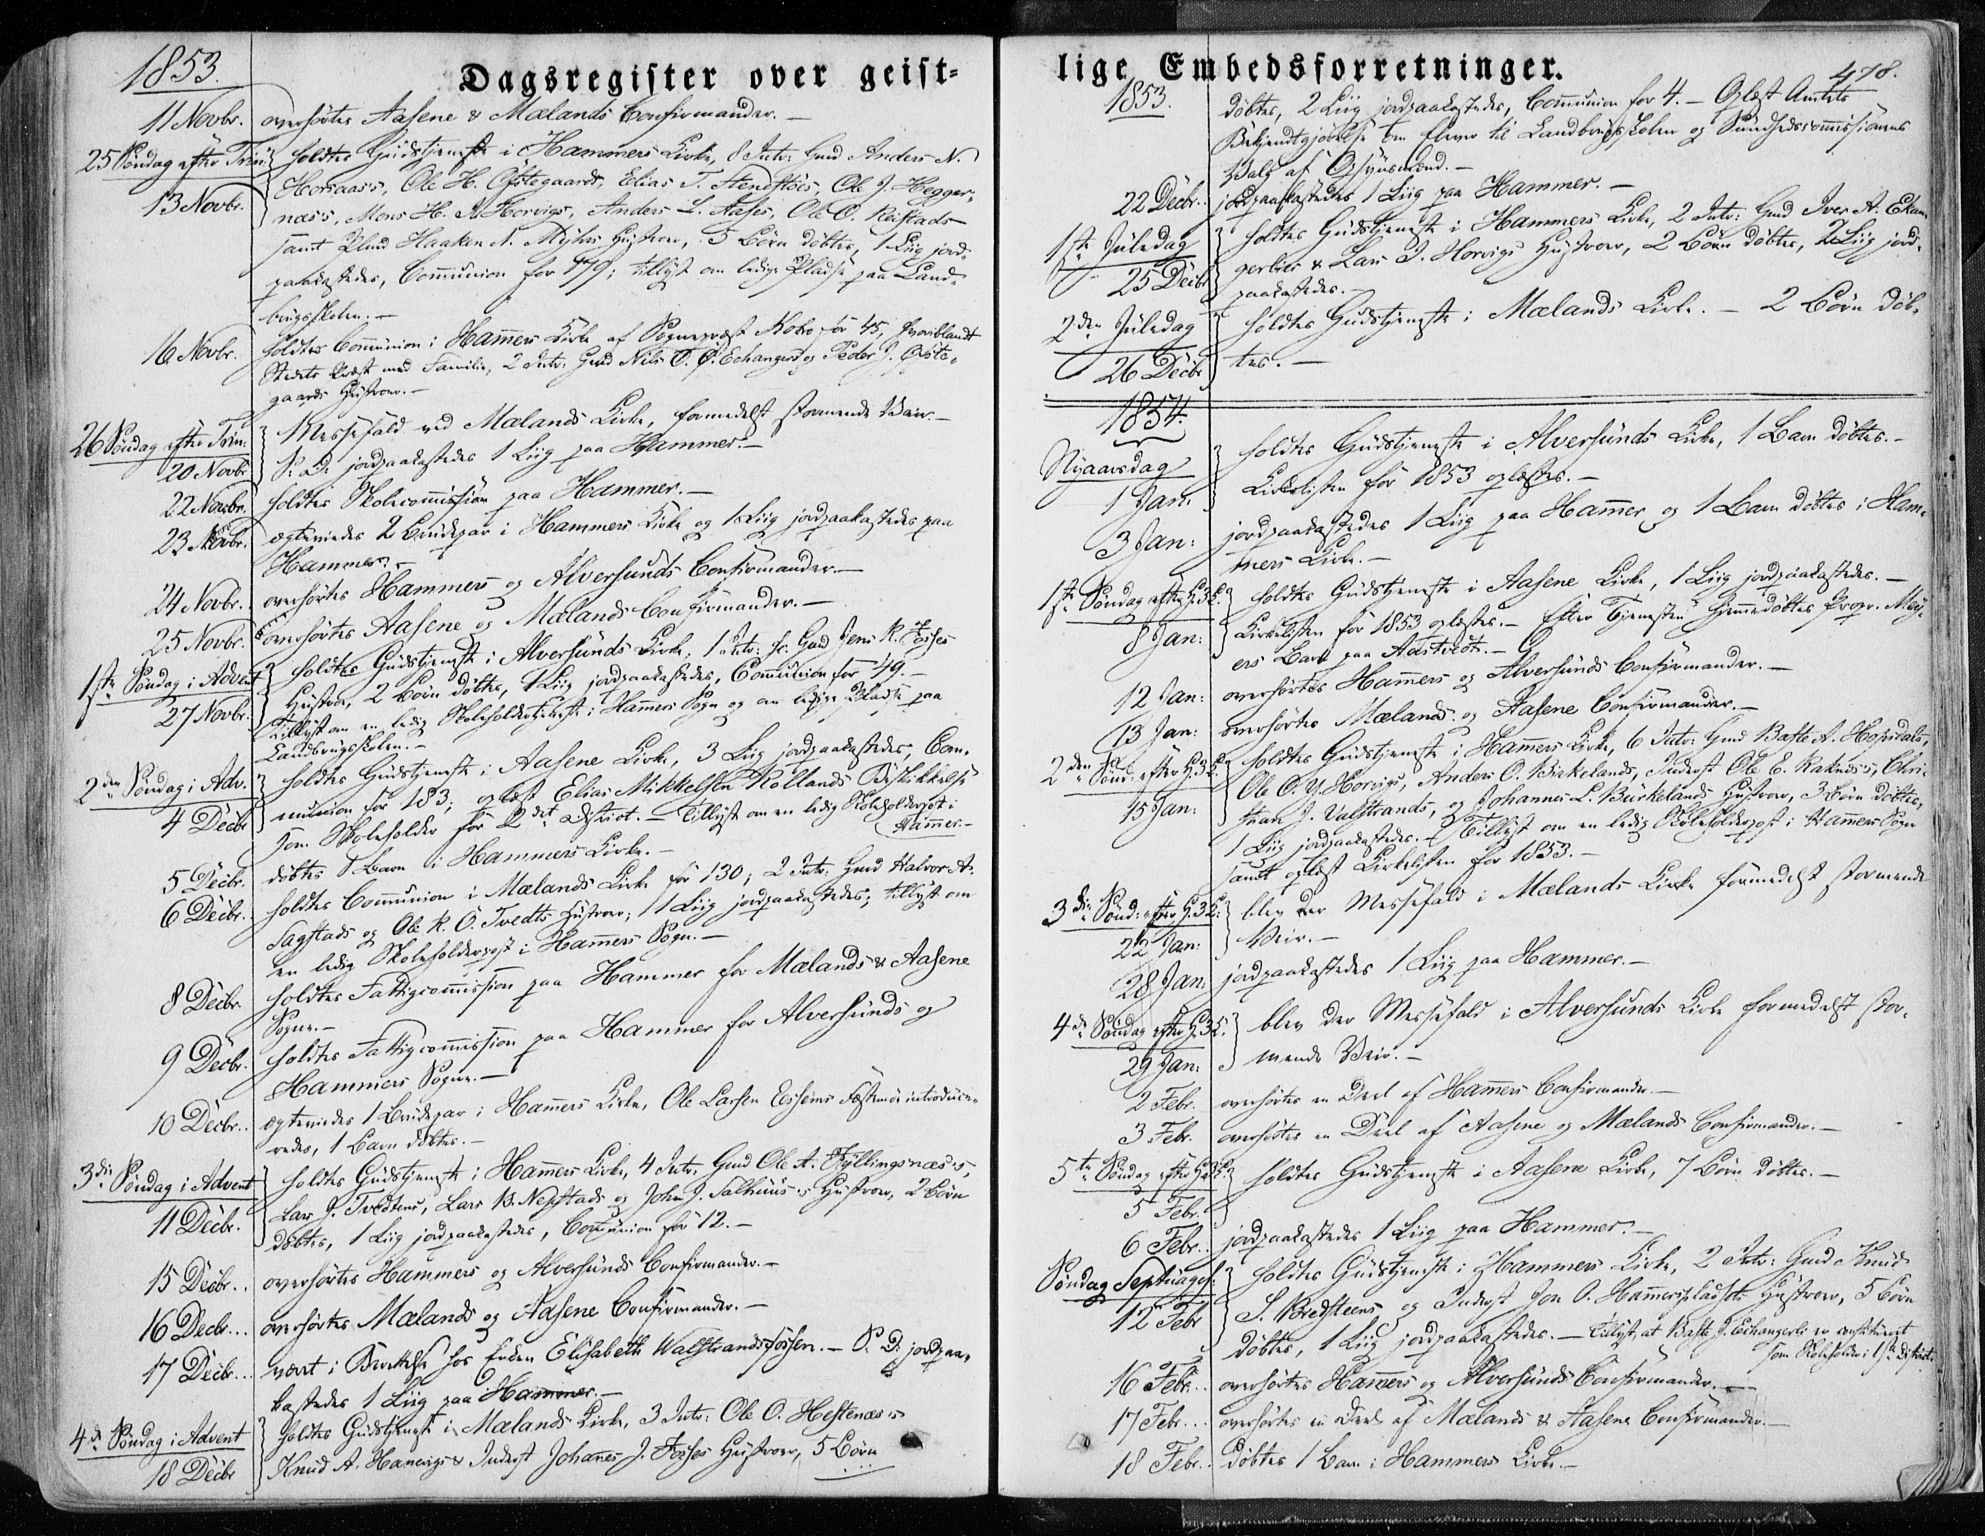 1853.
Dagsregister over geist=
11 Novbr. overhørtes Aasene & Mælands Confirmander. —
25 Søndag efter Trin: holdtes Gudstjeneste i Hammers Kirke, 8 Intr: Gmd Anders N.
13 Novbr. Horsaas's, Ole H. Ofstegaards, Elias T. Stendstøes, Ole J. Hegger-
næs's, Mons H. N. Horvigs, Anders L. Aases, Ole O. Reistads
samt Haaken N. Myhrs Hustroer, 5 Børn døbtes, 1 Liig jord-
paakastedes, Communion for 179; tillyst om ledige Pladse paa Land-
brugsskolen. —
16 Novbr. holdtes Communion i Hammers Kirke af Sogneprest Kobro for 45, hvoriblandt
Stedets Præst med Familie, 2 Intr: Gmd Nils O. Echangers og Peder J. Ofste-
gaards Hustroer. —
26 Søndag efter Trin: Messefald ved Mælands Kirke, formedelst stormende Veir —
20 Novbr S. D. jordpaakastedes 1 Liig paa Hammer. —
22 Novbr. holdtes Skolecommission paa Hammer. —
23 Novbr. ægteviedes 2 Brudepar i Hammers Kirke og 1 Liig jordpaakastedes paa
Hammer. —
24 Novbr. overhørtes Hammers og Alversunds Confirmander. —
25 Novbr. overhørtes Aasene og Mælands Confirmander. —
1ste Søndag i Advent holdtes Gudstjeneste i Alversunds Kirke, 1 Intr: Gmd Jens R. Fosses
27 Novbr. Hustroe, 2 Børn døbtes, 1 Liig jordpaakastedes, Communion for 149. —
Tillyst om en ledig Skoleholdertjeneste i Hammers Sogn og om ledige Pladse paa
Landbrugsskolen. —
2den Søndag i Adv. holdtes Gudstjeneste i Aasene Kirke, 3 Liig jordpaakastedes, Com-
4 Decbr munion for 183; oplæst Elias Mikkelsen Rollands Beskikkelse
som Skoleholder for 2det District. — Tillyst om en ledig Skoleholderpost i
Hammer. —
5 Decbr. døbtes 1 Barn i Hammers Kirke. —
6 Decbr. holdtes Communion i Mælands Kirke for 130; 2 Intr: Gmd Halvor A.
Sagstads og Ole K. O. Tvedts Hustroer; 1 Liig jordpaakastedes; tillyst om
en ledig Skoleholderpost i Hammers Sogn. —
8 Decbr. holdtes Fattigcommission paa Hammer for Mælands & Aasene
Sogne. —
9 Decbr. holdtes Fattigcommission paa Hammer for Alversunds og
Hammers Sogne. —
10 Decbr. ægteviedes 1 Brudepar i Hammers Kirke, Ole Larsen Fæstemø introduce-
redes, 1 Barn døbtes. —
3die Søndag i Advent holdtes Gudstjeneste i Hammers Kirke, 4 Intr. Gmd Ole A. Fyllingsnæs's,
11 Decbr. Lars J. Tvedtens, Lars B. Nepstads og John J. Salhuus's Hustroer, 2 Børn
døbtes, 1 Liig jordpaakastedes, Communion for 12. —
15 Decbr. overhørtes Hammers og Alversunds Confirmander. —
16 Decbr. overhørtes Mælands og Aasene Confirmander. —
17 Decbr. været i hos Enken Elisabeth Walstrandsfossen. — S. D. jordpaa-
kastedes 1 Liig paa Hammer. —
4de Søndag i Advent holdtes Gudstjeneste i Mælands Kirke, 3 Intr: Ole O. Hestenæs's
18 Decbr Knud A. Hanevigs & Inderst Johanes J. Fosses Hustroer, 5 Børn
lige Embedsforretninger.
478.
1853. døbtes, 2 Liig jordpaakastedes, Communion for 4. — Oplæst Amtets
Bekjendtgjørelse om Elever til Landbrugsskolen og Sundhedscommissionens
Valg af Opsynsmænd. —
22 Decbr. jordpaakastedes 1 Liig paa Hammer. —
1ste Juledag holdtes Gudstjeneste i Hammers Kirke, 2 Intr: Gmd Iver A. Ekan-
25 Decbr gerlies & Lars I. Horvigs Hustroer, 2 Børn døbtes, 2 Liig jord-
paakastedes. —
2den Juledag holdtes Gudstjeneste i Mælands Kirke. — 2 Børn døb-
26 Decbr tes. —
1854.
Nyaarsdag holdtes Gudstjeneste i Alversunds Kirke, 1 Barn døbtes. —
1 Jan: Kirkelisten for 1853 oplæstes. —
3 Jan: jordpaakastedes 1 Liig paa Hammer og 1 Barn døbtes i Ham-
mers Kirke. —
1ste Søndag efter H. 3 K. holdtes Gudstjeneste i Aasene Kirke, 1 Liig jordpaakastedes. —
8 Jan: Kirkelisten for 1853 oplæstes. — Efter Tjenesten hjemmedøbtes Propr. Mey-
ers Barn paa Aastvedt. —
12 Jan: overhørtes Hammers og Alversunds Confirmander. —
13 Jan: overhørtes Mælands og Aasene Confirmander. —
2den Sønd: efter H. 3 K. holdtes Gudstjeneste i Hammers Kirke, 6 Intr: Gmd Baste A. Hopsdals,
15 Jan: Ole O. Y. Horvigs, Anders O. Birkelands, Inderst Ole E. Raknes's, Chri-
stian J. Valstrands, og Johannes L. Burkelands Hustroer, 3 Børn døbtes,
1 Liig jordpaakastedes. — Tillyst om en ledig Skoleholderpost i Hammers Sogn
samt oplæst Kirkelisten for 1853. —
3die Sønd: efter H. 3 K. blev der Messefald i Mælands Kirke formedelst stormende
22 Jan: Veir. —
28 Jan: jordpaakastedes 1 Liig paa Hammer. —
4de Søndag efter H. 3 K. blev der Messefald i Alversunds Kirke formedelst stor-
29 Jan: mende Veir. —
2 Febr. overhørtes en Deel af Hammers Confirmander —
3 Febr. overhørtes en Deel af Aasene og Mælands Confirmander. —
5te Søndag efter H. 3 K. holdtes Gudstjeneste i Aasene Kirke, 7 Børn døbtes. —
5 Febr.
6 Febr. jordpaakastedes 1 Liig paa Hammer. —
Søndag Septuages: holdtes Gudstjeneste i Hammers Kirke, 2 Intr: Gmd Knud
12 Febr S. Bredsteens og Inderst Jon O. Hammerspladsets Hustroer, 5 Børn
døbtes, 1 Liig jordpaakastedes. — Tillyst, at Baste J. Eichangerli er constitueret
som Skoleholder i 1ste District.
16 Febr. overhørtes Hammers og Alversunds Confirmander. —
17 Febr. overhørtes en Deel af Mælands & Aasene Confirmander. —
18 Febr. døbtes 1 Barn i Hammers Kirke. —